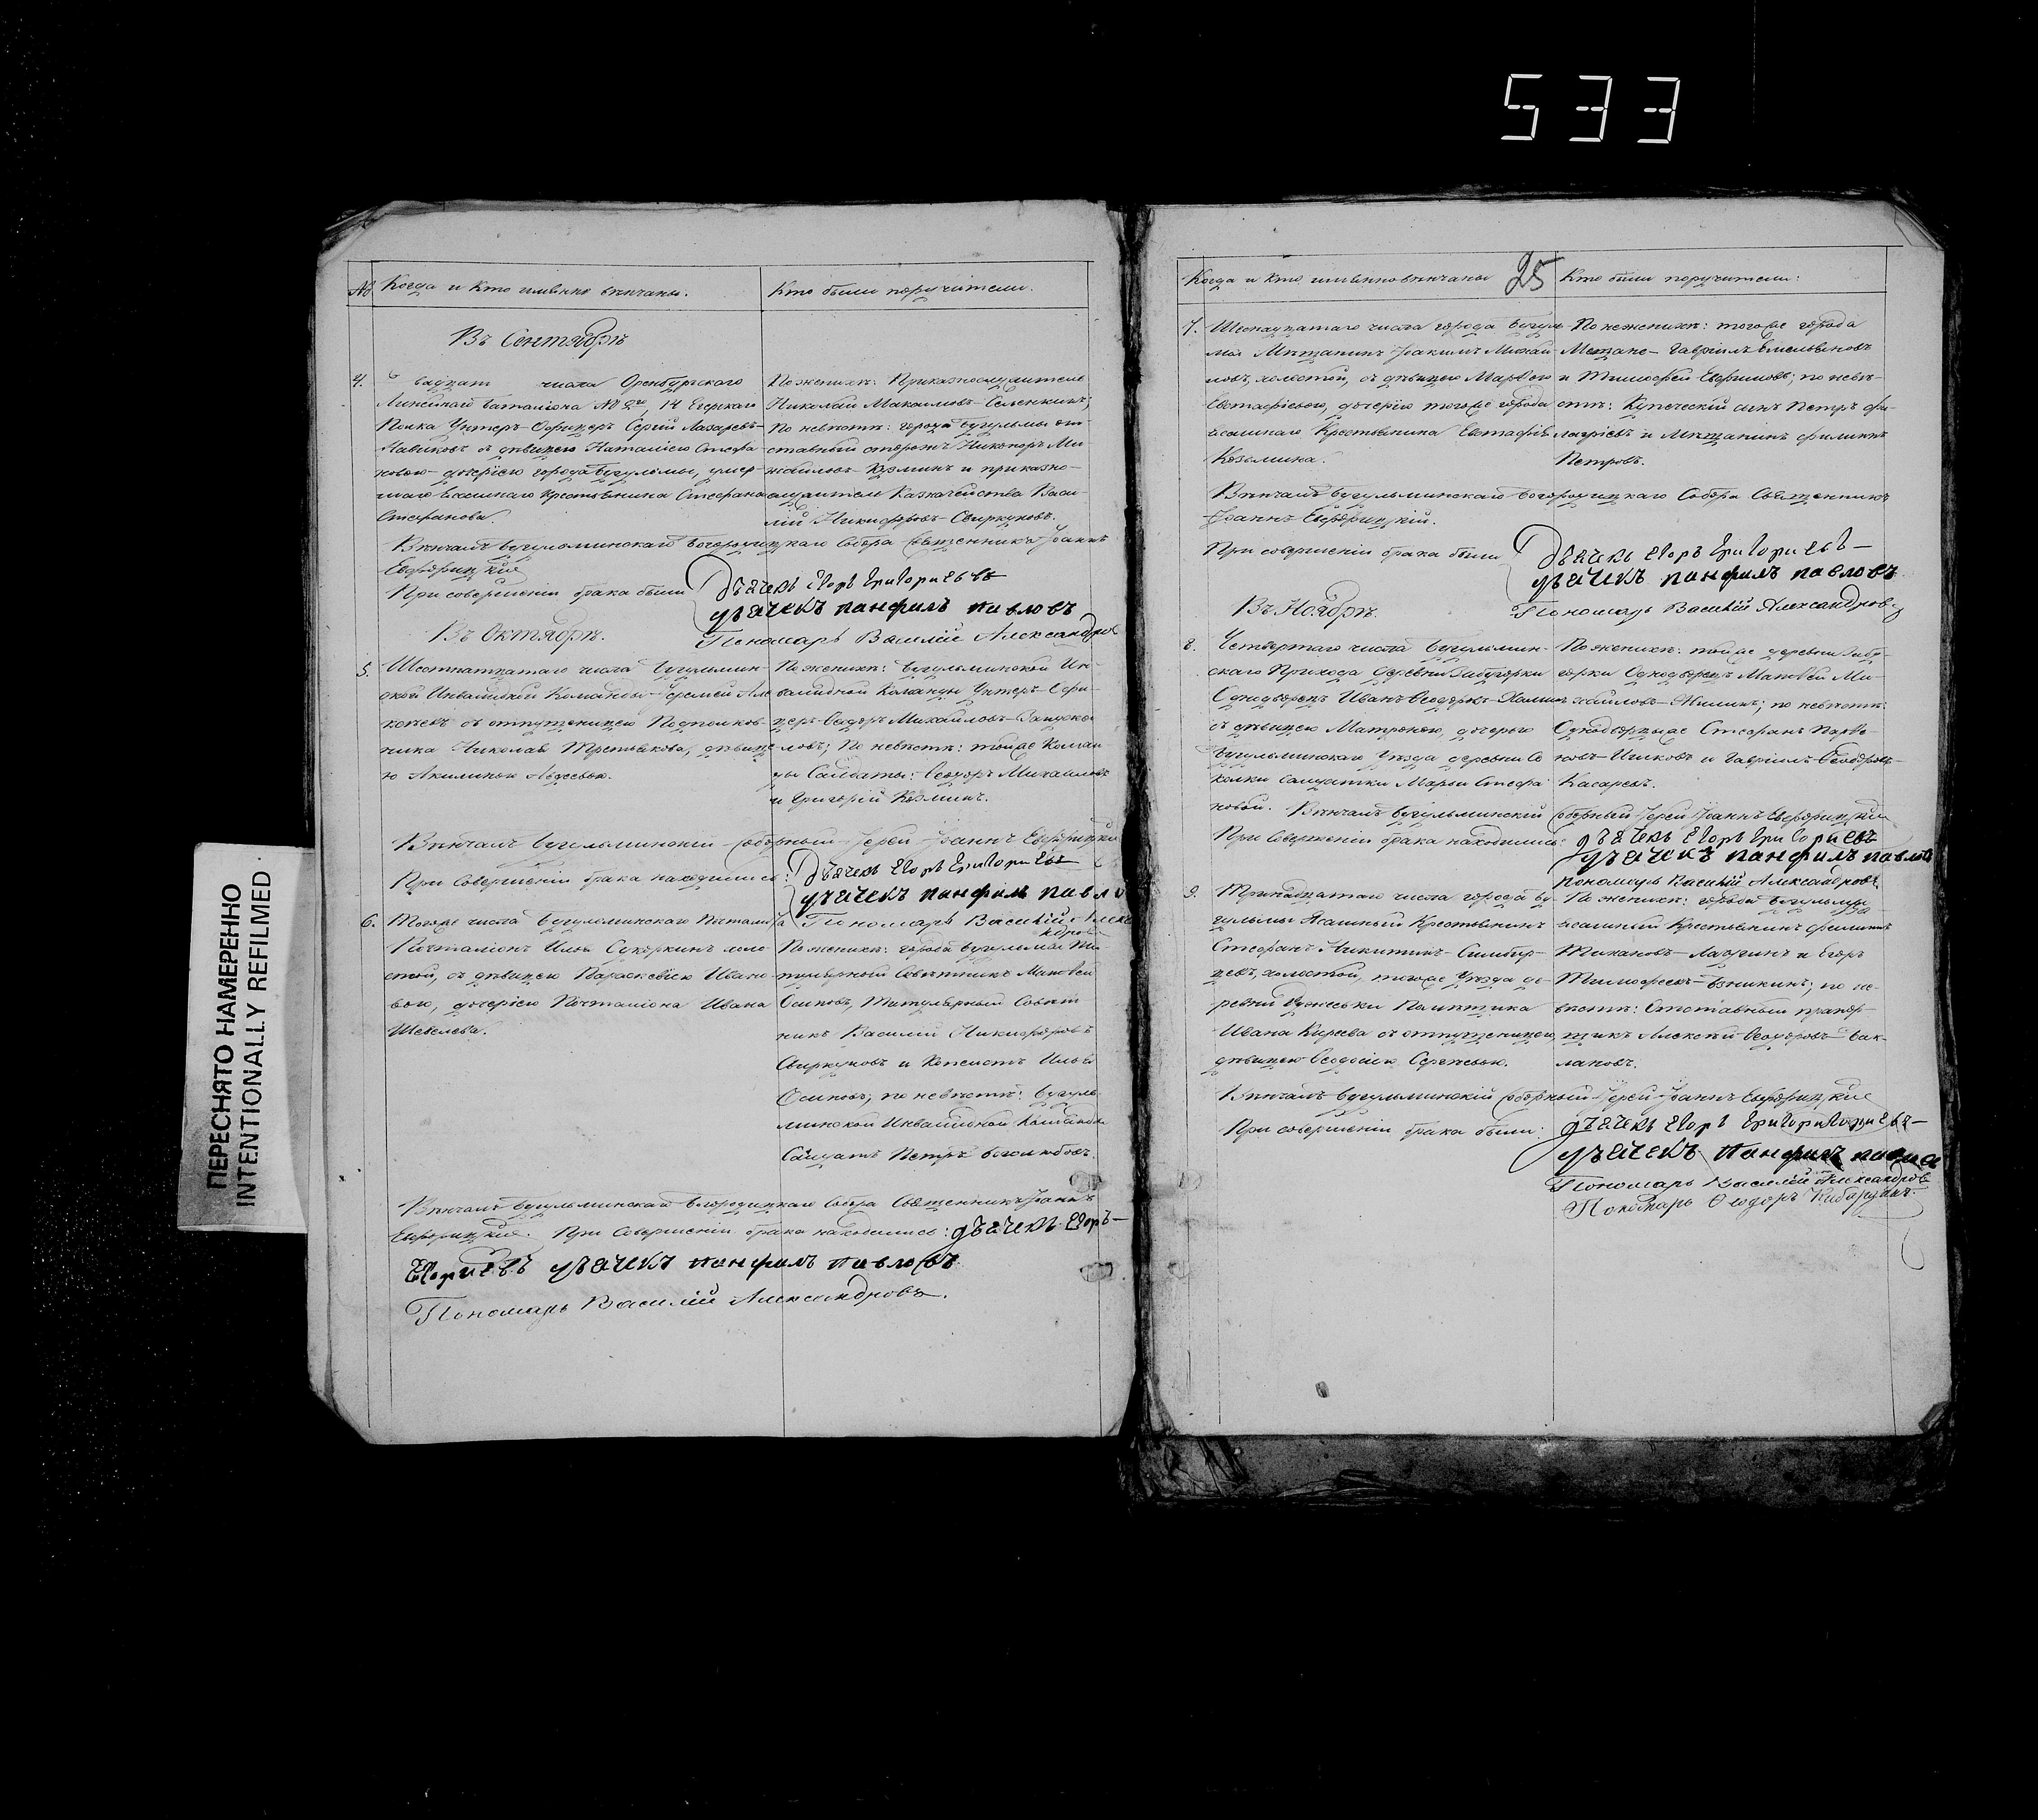 533
№ Когда и кто именно венчаны. Кто были поручители.
Въ Сентябрѣ
4. числа Оренбургскаго
Линейнаго баталіона № 2го, 14 Егерскаго
Полка Унтеръ-Офицеръ Сергій Лазаревъ-
Новиковъ съ дѣвицею Наталіею Стефа-
новою дочерью города Бугульмы, умер-
шаго ясашнаго крестьянина Стефана
Стефанова.
По женихѣ: Приказнослужители
Николай Максимовъ-Селенкинъ;
По невѣстѣ: города Бугульмы от
ставный сторожъ Никаноръ Ми-
хайловъ Козминъ и приказно-
служитель Казначейства Васи-
лій Никифоровъ-Свиркуновъ.
Вѣнчалъ бугульминскаго Богородицкаго Собора Священникъ Іоаннъ
Евфорицкій
При совершеніи брака были
Дьячекъ Егоръ Григорьевъ
дьячекъ панфилъ павловъ
Пономарь Василій Александро
Въ Октябрѣ.
5. Шестнатцатаго числа Бугульмин-
ской Инвалидной Команды Еремей Але
ксѣевъ съ отпущеницею Подполков-
ника Николая Третьякова, дѣвице
ю Акилиною Авдеевою.
По женихѣ: бугульминской Ин-
валидной Команды Унтеръ-Офи-
церъ Ѳедоръ Михайловъ-
ловъ; По невѣстѣ: тойже Коман
ды Салдаты: Ѳеодоръ Михайловъ
и Григорій Козминъ.
Вѣнчалъ бугульминскій Соборный Іерей Іоаннъ Евфорицкій
При Совершеніи брака находились:
Дьячекъ Егоръ Григорьевъ
дьячекъ панфилъ павло
Пономарь Василій Алек
6. Тогоже числа бугульминскаго
Почталіонъ Илья Сукоркинъ холо
стой, съ дѣвицею Параскевіею Ивано
вою, дочерью Почталіона Ивана
Шевелева.
По женихѣ: города бугульмы Ти
тулярный Совѣтникъ Матвей
Осиповъ, Титулярный Совѣт
никъ Василій Никифоровъ
Свиркуновъ и Копеистъ Илья
Осиповъ; по невѣстѣ: бугуль
минской Инвалидной Команды
Салдатъ Петръ Боголюбовъ.
Вѣнчалъ бугульминскаго Богородицкаго Собора Священникъ Іоаннъ
Евфорицкій. При Совершеніи брака находились: дьячекъ Егоръ
дьячекъ панфилъ павловъ
Пономарь Василій Александровъ.
Когда и кто именно вѣнчаны 25 Кто были поручители:
7. числа города бугуль
мы Мѣщанинъ Іоакимъ Михай
ловъ, холостой, съ дѣвицею Марѳою
Евстафіевою, дочерью тогоже города
ясашнаго Крестьянина Евстафія
Козьмина.
По женихѣ: тогоже города
Мещане- Гавріилъ Емельяновъ
и Тимофей Евфимовъ; по невѣ-
стѣ: Купеческій сынъ Петръ Фи-
лагріевъ и Мѣщанинъ Филиппъ
Петровъ.
Вѣнчалъ бугульминскаго Богородицкаго Собора Священникъ
Іоаннъ Евфорицкій.
При совершеніи брака были
Дьячекъ Егоръ Григорьевъ
дьячекъ панфилъ павловъ
Пономарь Василій Александровъ
Въ Ноябрѣ.
8. Четвертаго числа Бугульмин-
скаго Прихода деревни Забугорки
Однодворецъ Иванъ Ѳеодоровъ
съ дѣвицею Матроною, дочерью
Бугульминскаго Уѣзда деревни Со
колки салдатки Марьи Стефа
новой.
По женихѣ: тойже деревни Забу-
горки Однодворецъ Матвей Ми-
хайловъ-Жилинъ; по невѣстѣ:
Однодворцыже Стефанъ
и Гавріилъ Ѳеодоровъ
Касаревъ.
Вѣнчалъ Бугульминскій Соборный Іерей Іоаннъ Евфорицкій
При Совершеніи брака находились:
дьячекъ Егоръ Григорьевъ
дьячекъ панфилъ павловъ
Пономарь Василій Александровъ
9. Тринадцатаго числа города бу
гульмы Ясашный Крестьянинъ
Стефанъ Никитинъ- Симбир-
цевъ, холостой, тогоже Уѣзда де-
ревни Помѣщика
Ивана Киреева съ отпущеницею
дѣвицею Ѳеодосіею Сергеевою.
По женихѣ: города бугульмы
ясашный Крестьянинъ Филиппъ
и Егоръ
Тимофеевъ ; по не-
вѣстѣ: Отставный прапор-
щикъ Алексѣй Ѳеодоровъ Бак-
лановъ.
Вѣнчалъ бугульминскій Соборный Іерей Іоаннъ Евфорицкій
При совершеніи брака были:
дьячекъ Егоръ
дьячекъ панфилъ павло
Пономарь Василій Александровъ
Пономарь Ѳеодоръ
ПЕРЕСНЯТО НАМЕРЕННО
INTENTIONALLY REFILMED